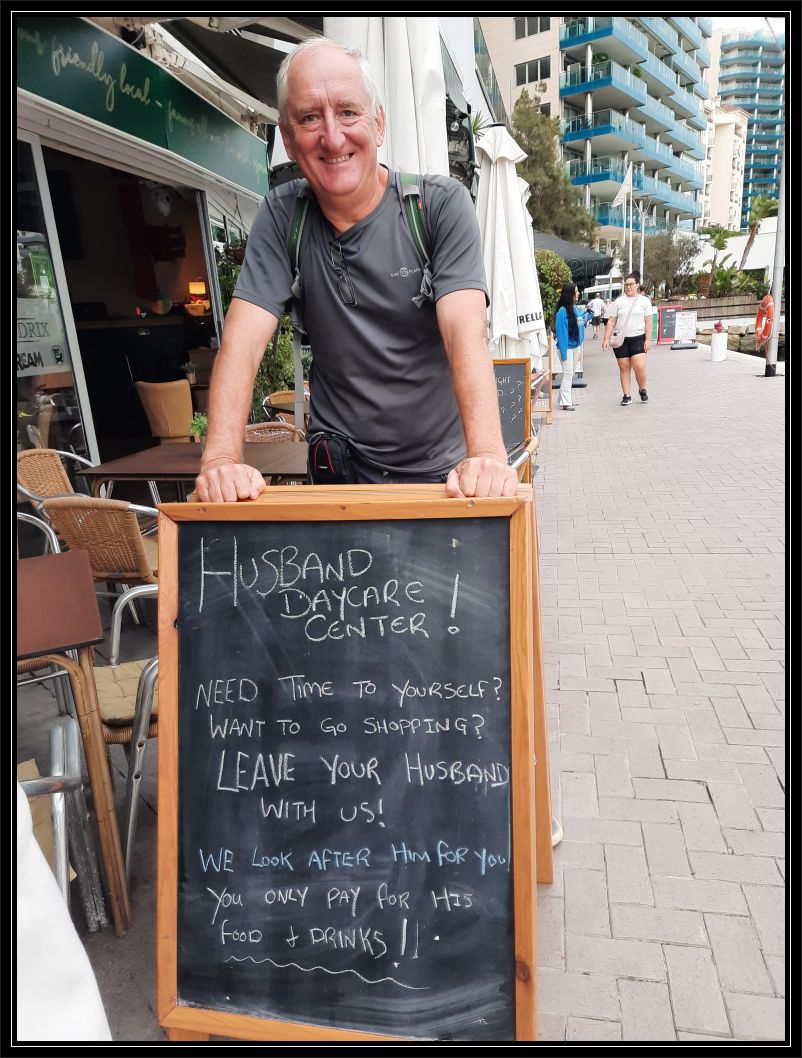 our friendly local -
HUSBAND
DAYCARE
CENTER!
NEED TIME TO YOURSELF?
WANT TO GO SHOPPING?
LEAVE YOUR HUSBAND
WITH US!
WE LOOK AFTER HIM FOR YOU
YOU ONLY PAY FOR HIS
FOOD + DRINKS!!.